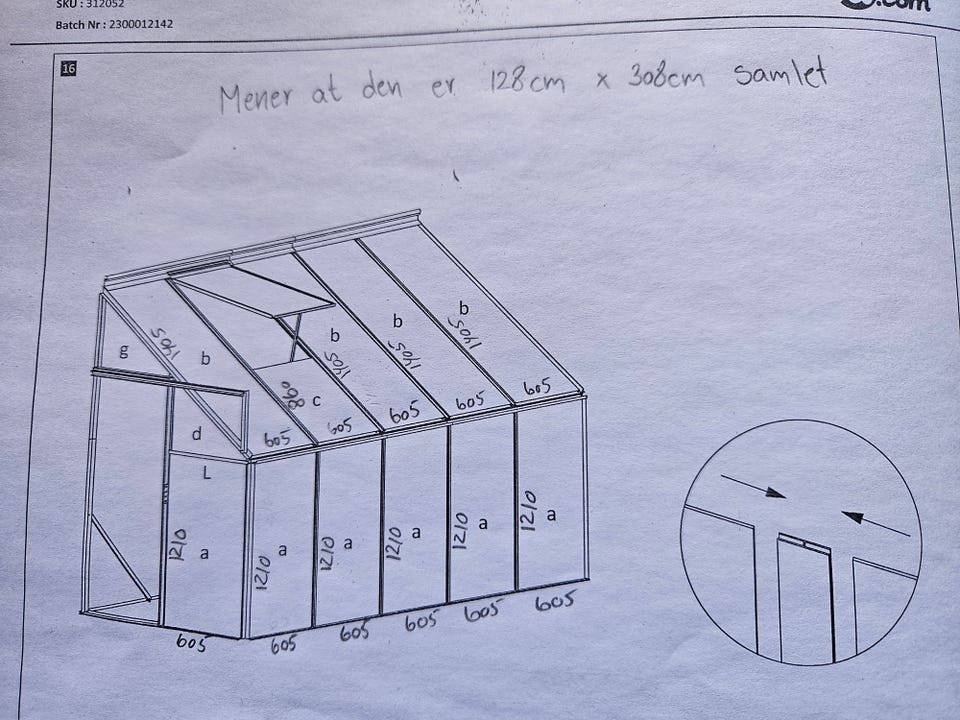 SKU : 312052
.com
Batch Nr : 2300012142
16
Mener at den er 128cm x 308cm samlet
b
1405
g
1405
b
b
1405
b
1405
860
c
605
605
605
605
605
d
L
1210
a
1210
a
1210
a
1210
a
1210
a
1210
a
605
605
605
605
605
605